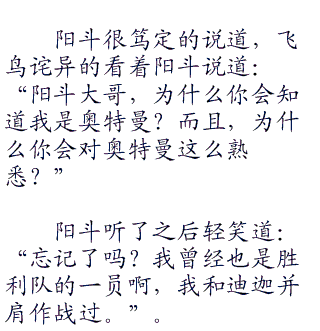 阳斗很笃定的说道，飞
鸟诧异的看着阳斗说道：
“阳斗大哥，为什么你会知
道我是奥特曼？而且，为什
么你会对奥特曼这么熟
悉？”
阳斗听了之后轻笑道：
“忘记了吗？我曾经也是胜
利队的一员啊，我和迪迦并
肩作战过。”。